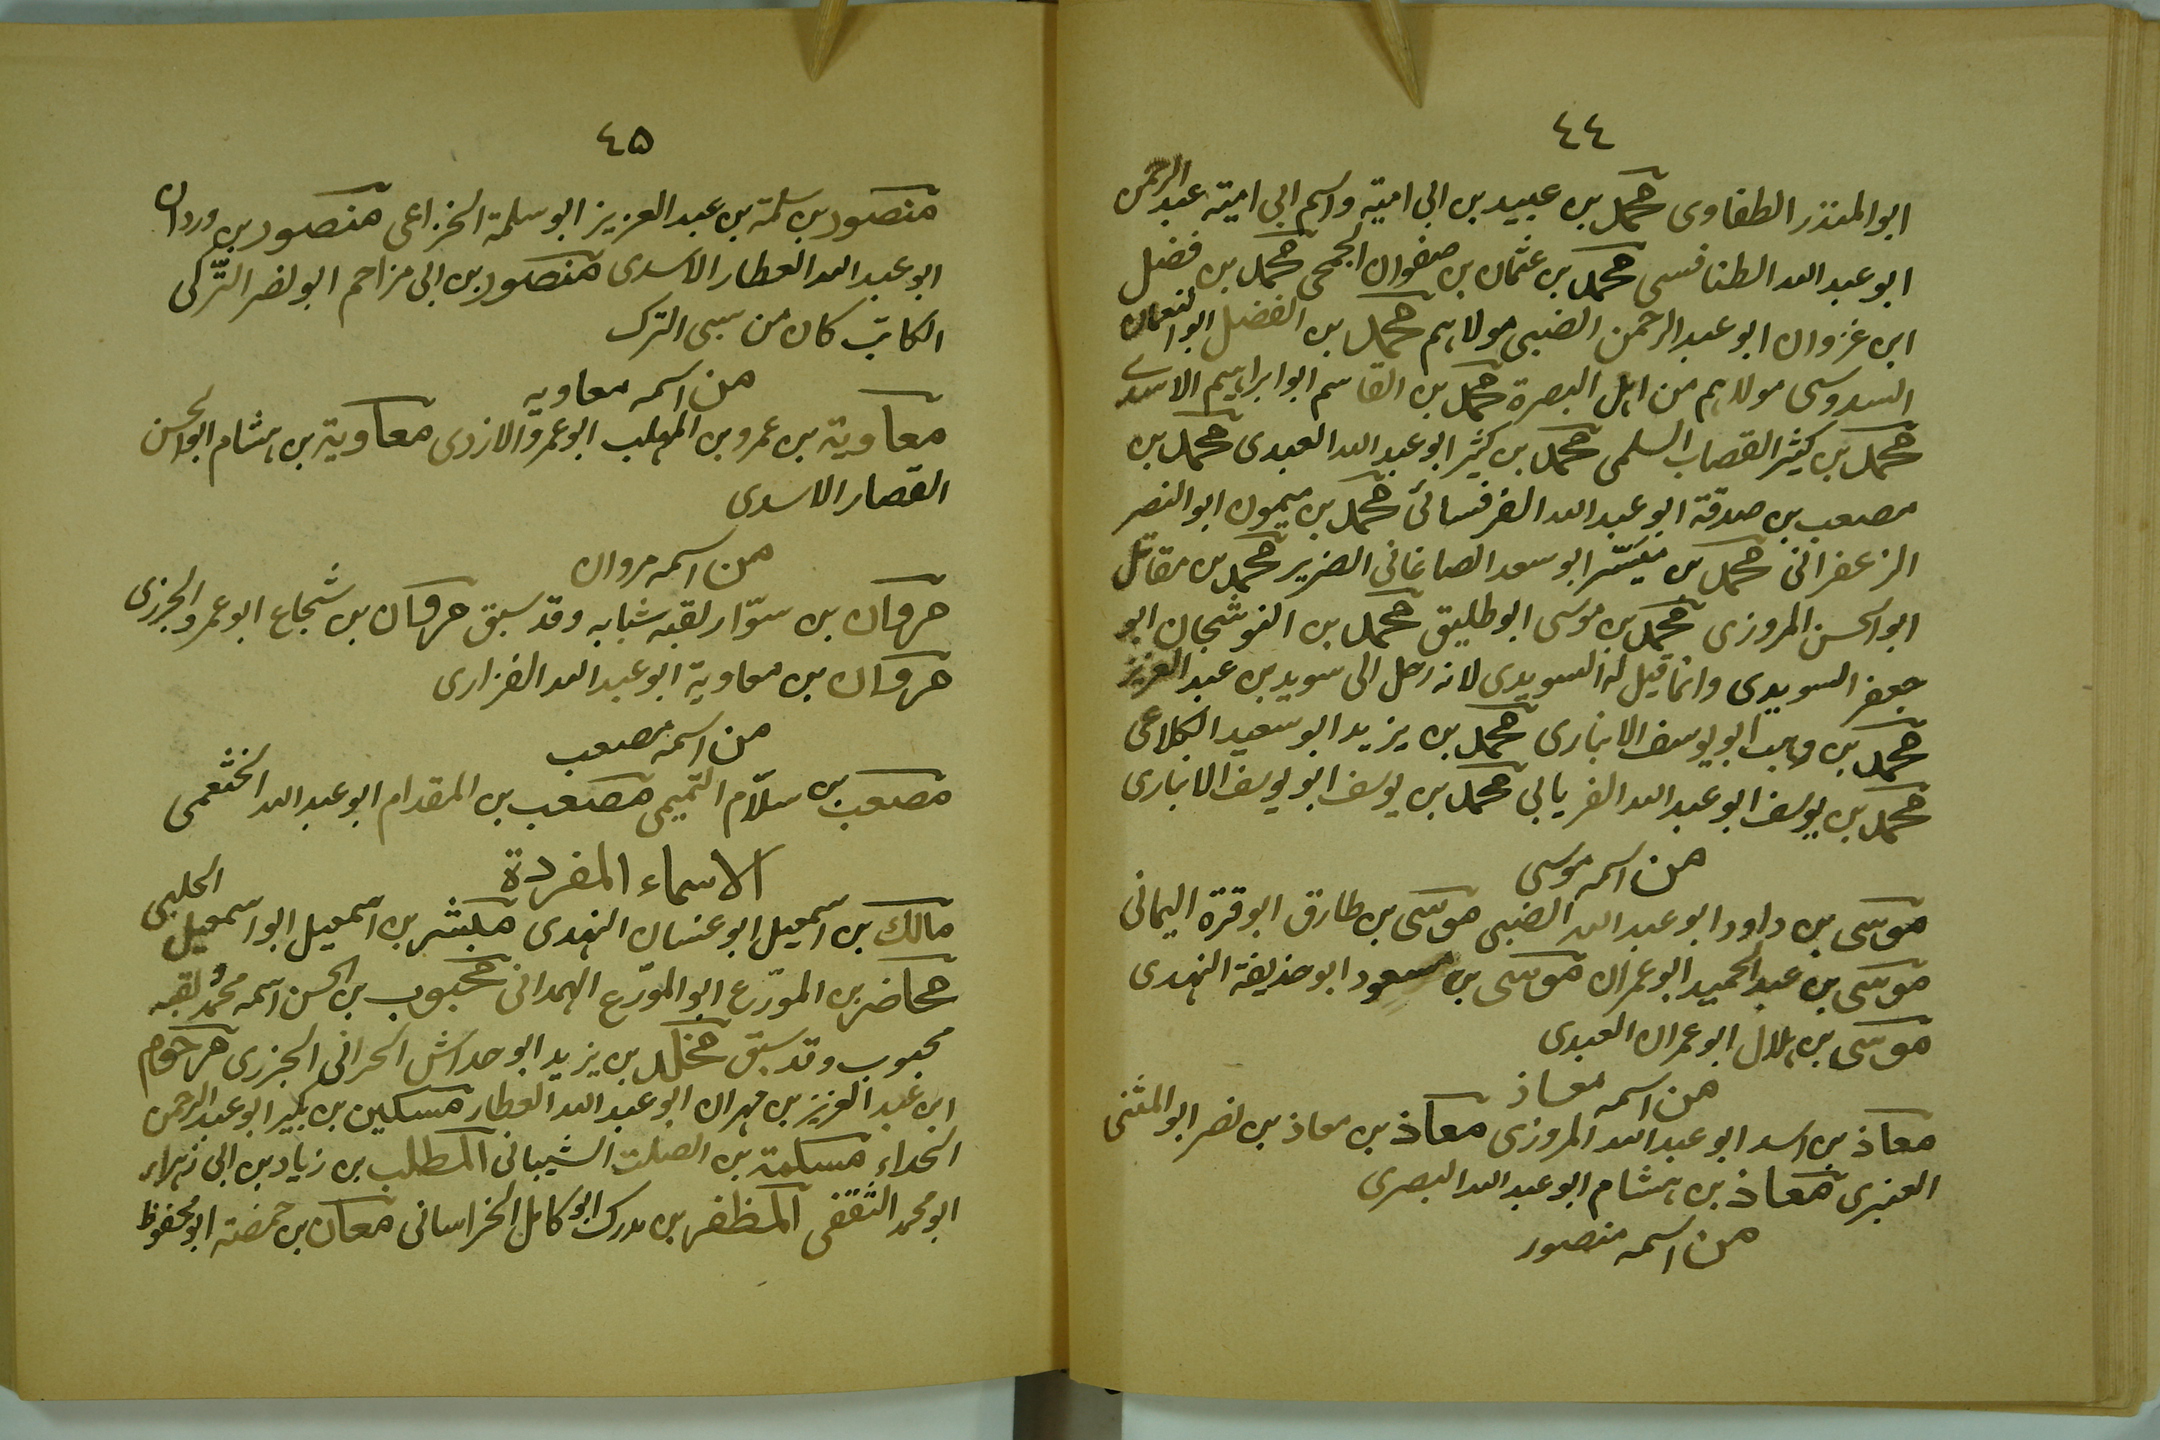 ٤٤
ابو المنذر الطفاوى محمد بن عبيد بن ابى امية واسم ابى امية عبد الرحمن
ابو عبد الله الطنافسى محمد بن عثمان بن صفوان الجمحى محمد بن فضيل
ابن غزوان ابو عبد الرحمن الضبى مولاهم محمد بن الفضل ابو النعمان
السدوسى مولاهم من اهل البصرة محمد بن القاسم ابو ابراهيم الاسدى
محمد بن كثير القصاب السلمى محمد بن كثير ابو عبد الله العبدى محمد بن
مصعب بن صدقة ابو عبد الله القرقسائى محمد بن ميمون ابو النصر
الزعفرانى محمد بن ميسر ابو سعد الصاغانى الضرير محمد بن مقاتل
ابو الحسن المروزى محمد بن موسى ابو طليق محمد بن النوشجان ابو
جعفر السويدى وانما قيل له السويدى لانه رحل الى سويد بن عبد العزيز
محمد بن وهب ابو يوسف الانبارى محمد بن يزيد ابو سعيد الكلاعى
محمد بن يوسف ابو عبد الله الفريابى محمد بن يوسف ابو يوسف الانبارى
من اسمه موسى
موسى بن داود ابو عبد الله الضبى موسى بن طارق ابو قرة اليمانى
موسى بن عبد الحميد ابو عمران موسى بن مسعود ابو حذيفة النهدى
موسى بن هلال ابو عمران العبدى
من اسمه معاذ
معاذ بن اسد ابو عبد الله المروزى معاذ بن معاذ بن نصر ابو المثنى
العنبرى معاذ بن هشام ابو عبد الله البصرى
من اسمه منصور
٤٥
منصور بن سلمة بن عبد العزيز ابو سلمة الخزاعى منصور بن وردان
ابو عبد الله العطار الاسدى منصور بن ابى مزاحم ابو نصر التّركى
الكاتب كان من سبى الترك
من اسمه معاويه
معاوية بن عمرو بن المهلب ابو عمرو الازدى معاوية بن هشام ابو الحسن
القصار الاسدى
من اسمه مروان
مروان بن سوّار لقبه شبابه وقد سبق مروان بن شجاع ابو عمرو الجزرى
مروان بن معاوية ابو عبد الله الفزارى
من اسمه مصعب
مصعب بن سلّام التميمى مصعب بن المقدام ابو عبد الله الخثعمى
الاسماء المفردة
مالك بن اسمعيل ابو غسان النهدى مبشر بن اسمعيل ابو اسمعيل الحلبى
محاضر بن المورّع ابو المورّع الهمدانى محبوب بن الحسن اسمه محمد ولقبه
محبوب وقد سبق مخلد بن يزيد ابو خداش الحرانى الجزرى مرحوم
ابن عبد العزيز بن مهران ابو عبد الله العطار مسكين بن بكير ابو عبد الرحمن
الحداء مسلمة بن الصلت الشيبانى المطلب بن زياد بن ابى زهراء
ابو محمد الثقفى المظفر بن مدرك ابو كامل الخراسانى معان بن حمضة ابو محفوظ